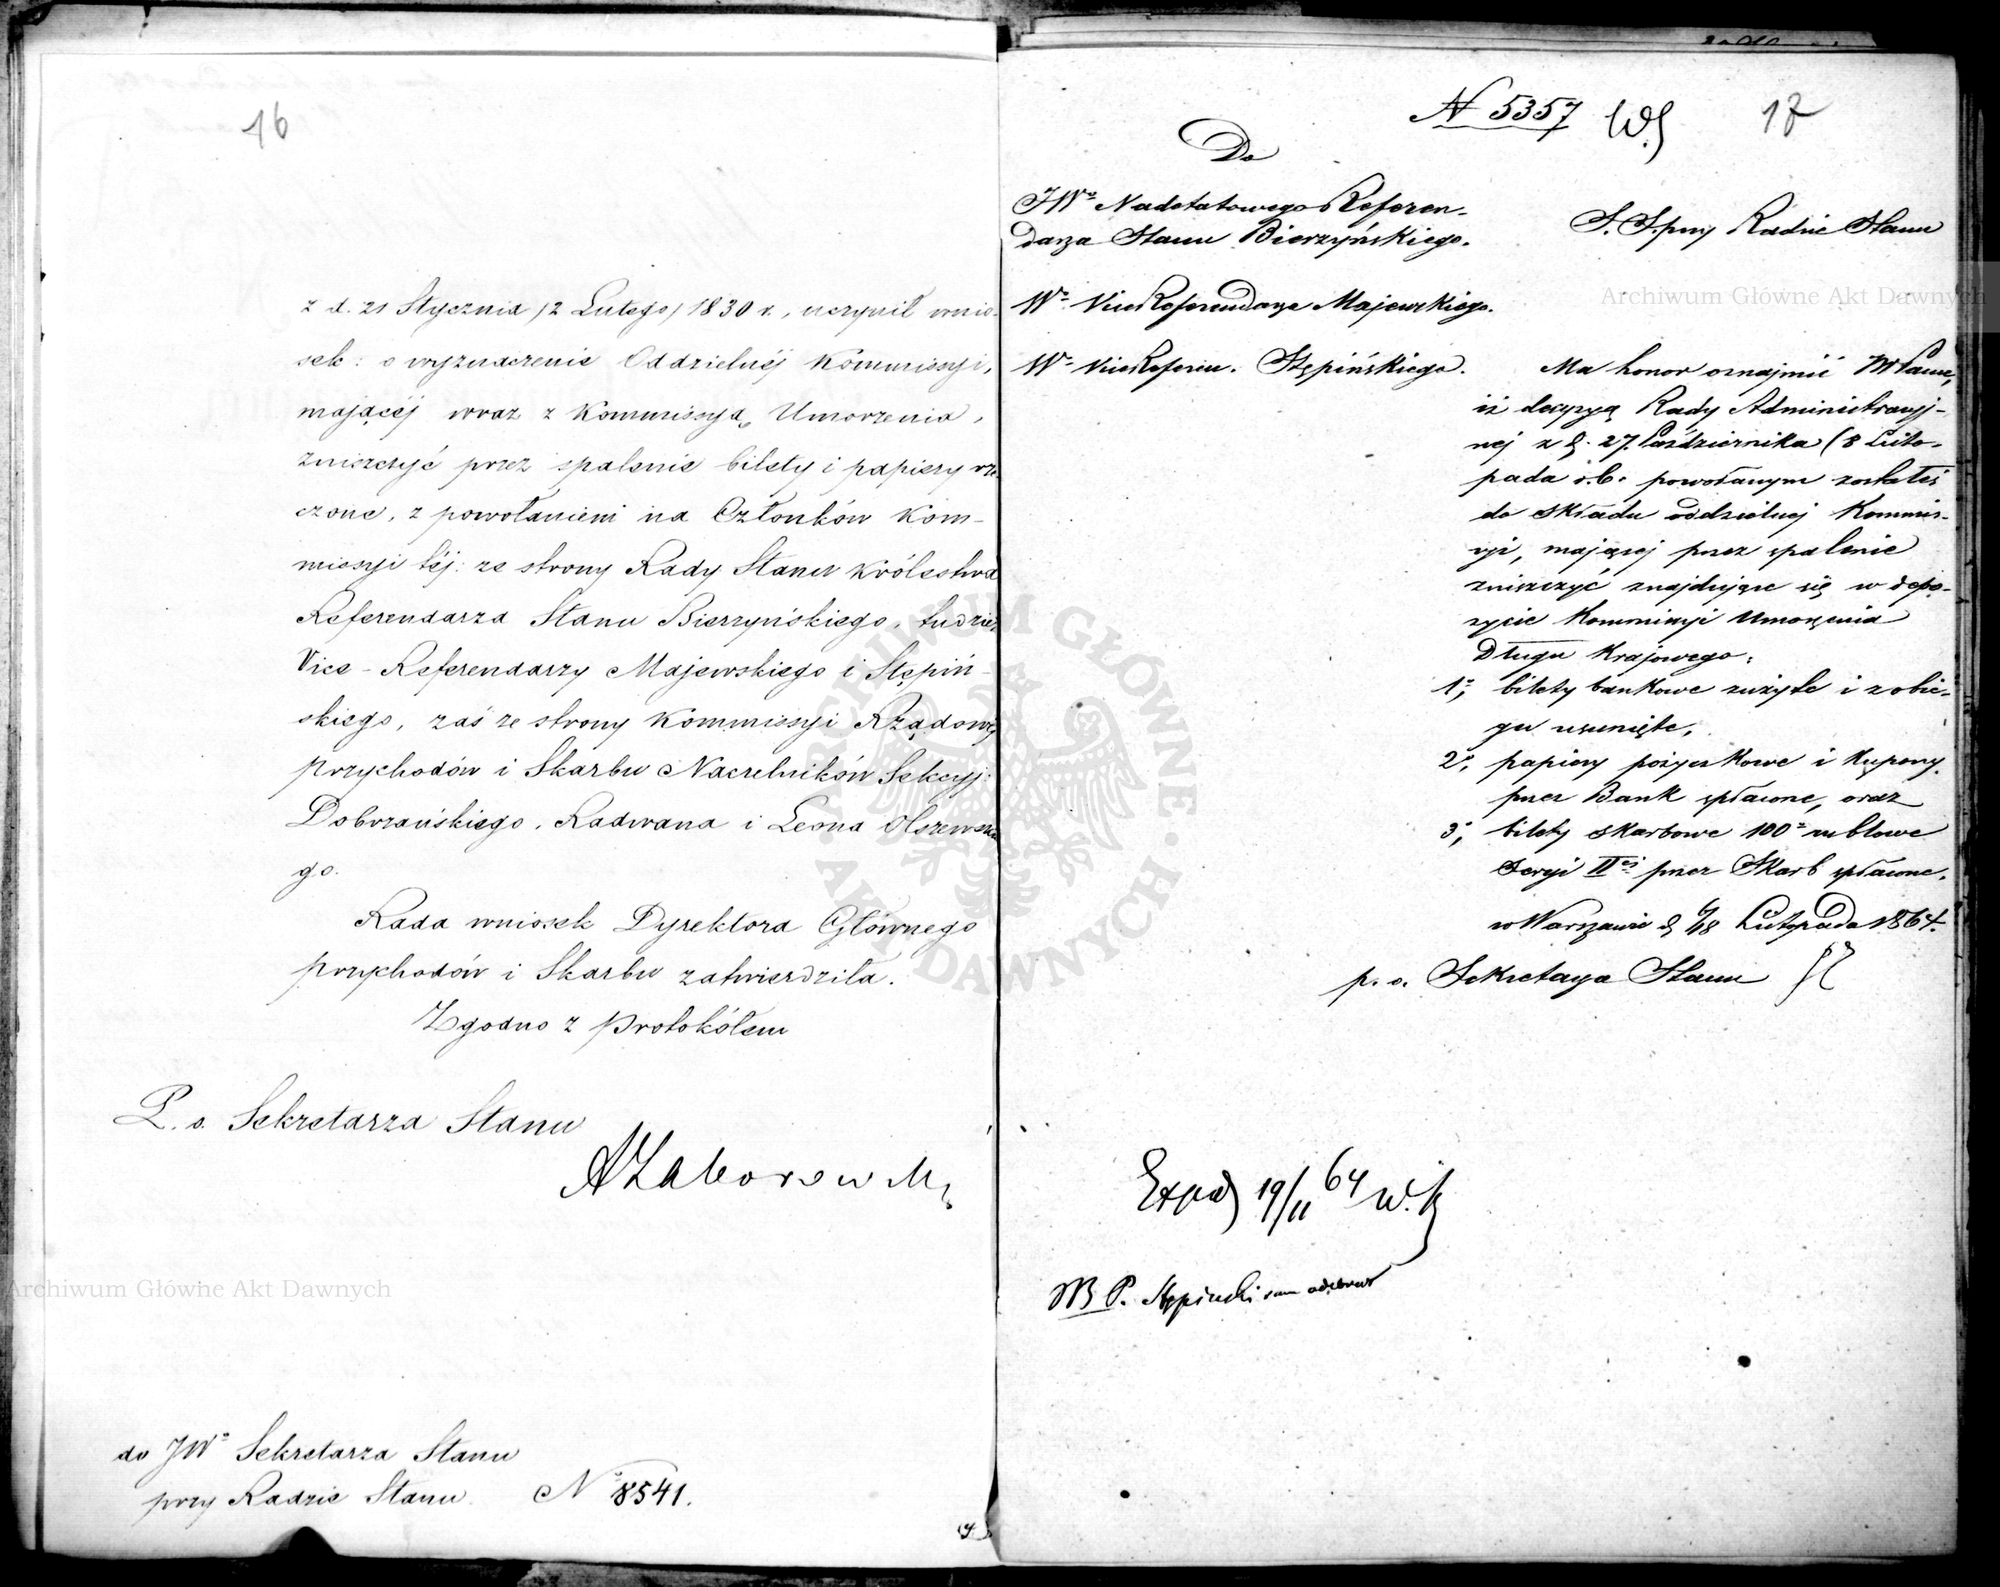 16
z d. 21 Stycznia /2 Lutego/ 1830 r., uczynił wnio-
sek: o wyznaczenie Oddzielnéj Kommissyi,
mającéj wraz z Kommissyą Umorzenia,
zniszczyć przez spalenie bilety i papiery rze-
czone, z powołaniem na Członków Kom-
missyi téj: ze strony Rady Stanu Królestwa
Referendarza Stanu Bierzyńskiego, tudzież
Vice-Referendarzy Majewskiego i Stępiń-
skiego, zaś ze strony Kommissyi Rządowéj
Przychodów i Skarbu Naczelników Sekcyj:
Dobrzańskiego, Radwana i Leona Olszewskie-
go.
Rada wniosek Dyrektora Głównego
Przychodów i Skarbu zatwierdziła.
Zgodno z Protokółem
P. o. Sekretarza Stanu
AZaborowski
do JWo Sekretarza Stanu
przy Radzie Stanu No 8541.
N 5357
17
Do
JWo Nadetatowego Referen-
darza Stanu Bierzyńskiego.
Wo ViceReferendarza Majewskiego.
Wo ViceReferen. Stępińskiego.
S. S. przy Radzie Stanu
Ma honor oznajmić WPanu,
iż decyzyą Rady Administracyj-
nej z d. 27. Października (8 Listo-
pada r.b. powołanym zostałeś
do składu oddzielnej Kommis-
syi, mającej przez spalenie
zniszczyć znajdujące się w depo-
zycie Kommissyi Umorzenia
Długu Krajowego:
1o, bilety bankowe zużyte i z obie-
gu usunięte,
2o, papiery pożyczkowe i kupony
przez Bank spłacone, oraz
3o, bilety skarbowe 100o rublowe
Seryi IIej przez Skarb spłacone.
w Warszawie d 6/18 Listopada 1864.
p. o. Sekretarza Stanu
Exped 19/11 64 W.K
WP. Stępiński sam odebrał
Archiwum Główne Akt Dawnych
Archiwum Główne Akt Dawnych
ARCHIWUM GŁÓWNE AKT DAWNYCH